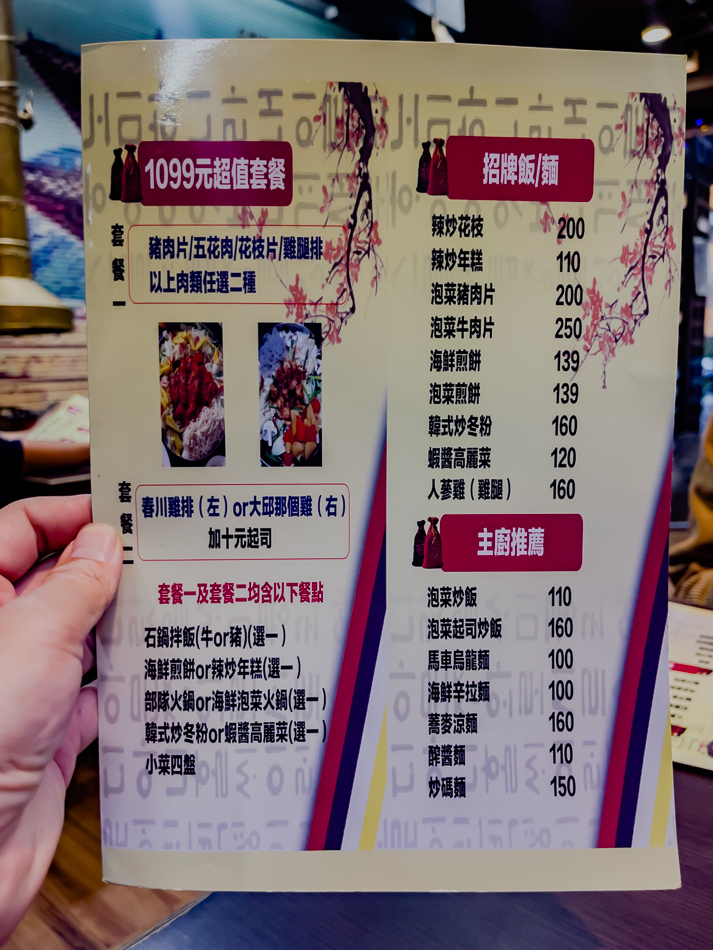 1099元超值套餐
套餐一
豬肉片/五花肉/花枝片/雞腿排
以上肉類任選二種
套餐二
春川雞排（左）or大邱那個雞（右）
加十元起司
套餐一及套餐二均含以下餐點
石鍋拌飯(牛or豬)(選一)
海鮮煎餅or辣炒年糕(選一)
部隊火鍋or海鮮泡菜火鍋(選一)
韓式炒冬粉or蝦醬高麗菜(選一)
小菜四盤
招牌飯/麵
辣炒花枝 200
辣炒年糕 110
泡菜豬肉片 200
泡菜牛肉片 250
海鮮煎餅 139
泡菜煎餅 139
韓式炒冬粉 160
蝦醬高麗菜 120
人蔘雞（雞腿） 160
主廚推薦
泡菜炒飯 110
泡菜起司炒飯 160
馬車烏龍麵 100
海鮮辛拉麵 100
蕎麥涼麵 160
醡醬麵 110
炒碼麵 150